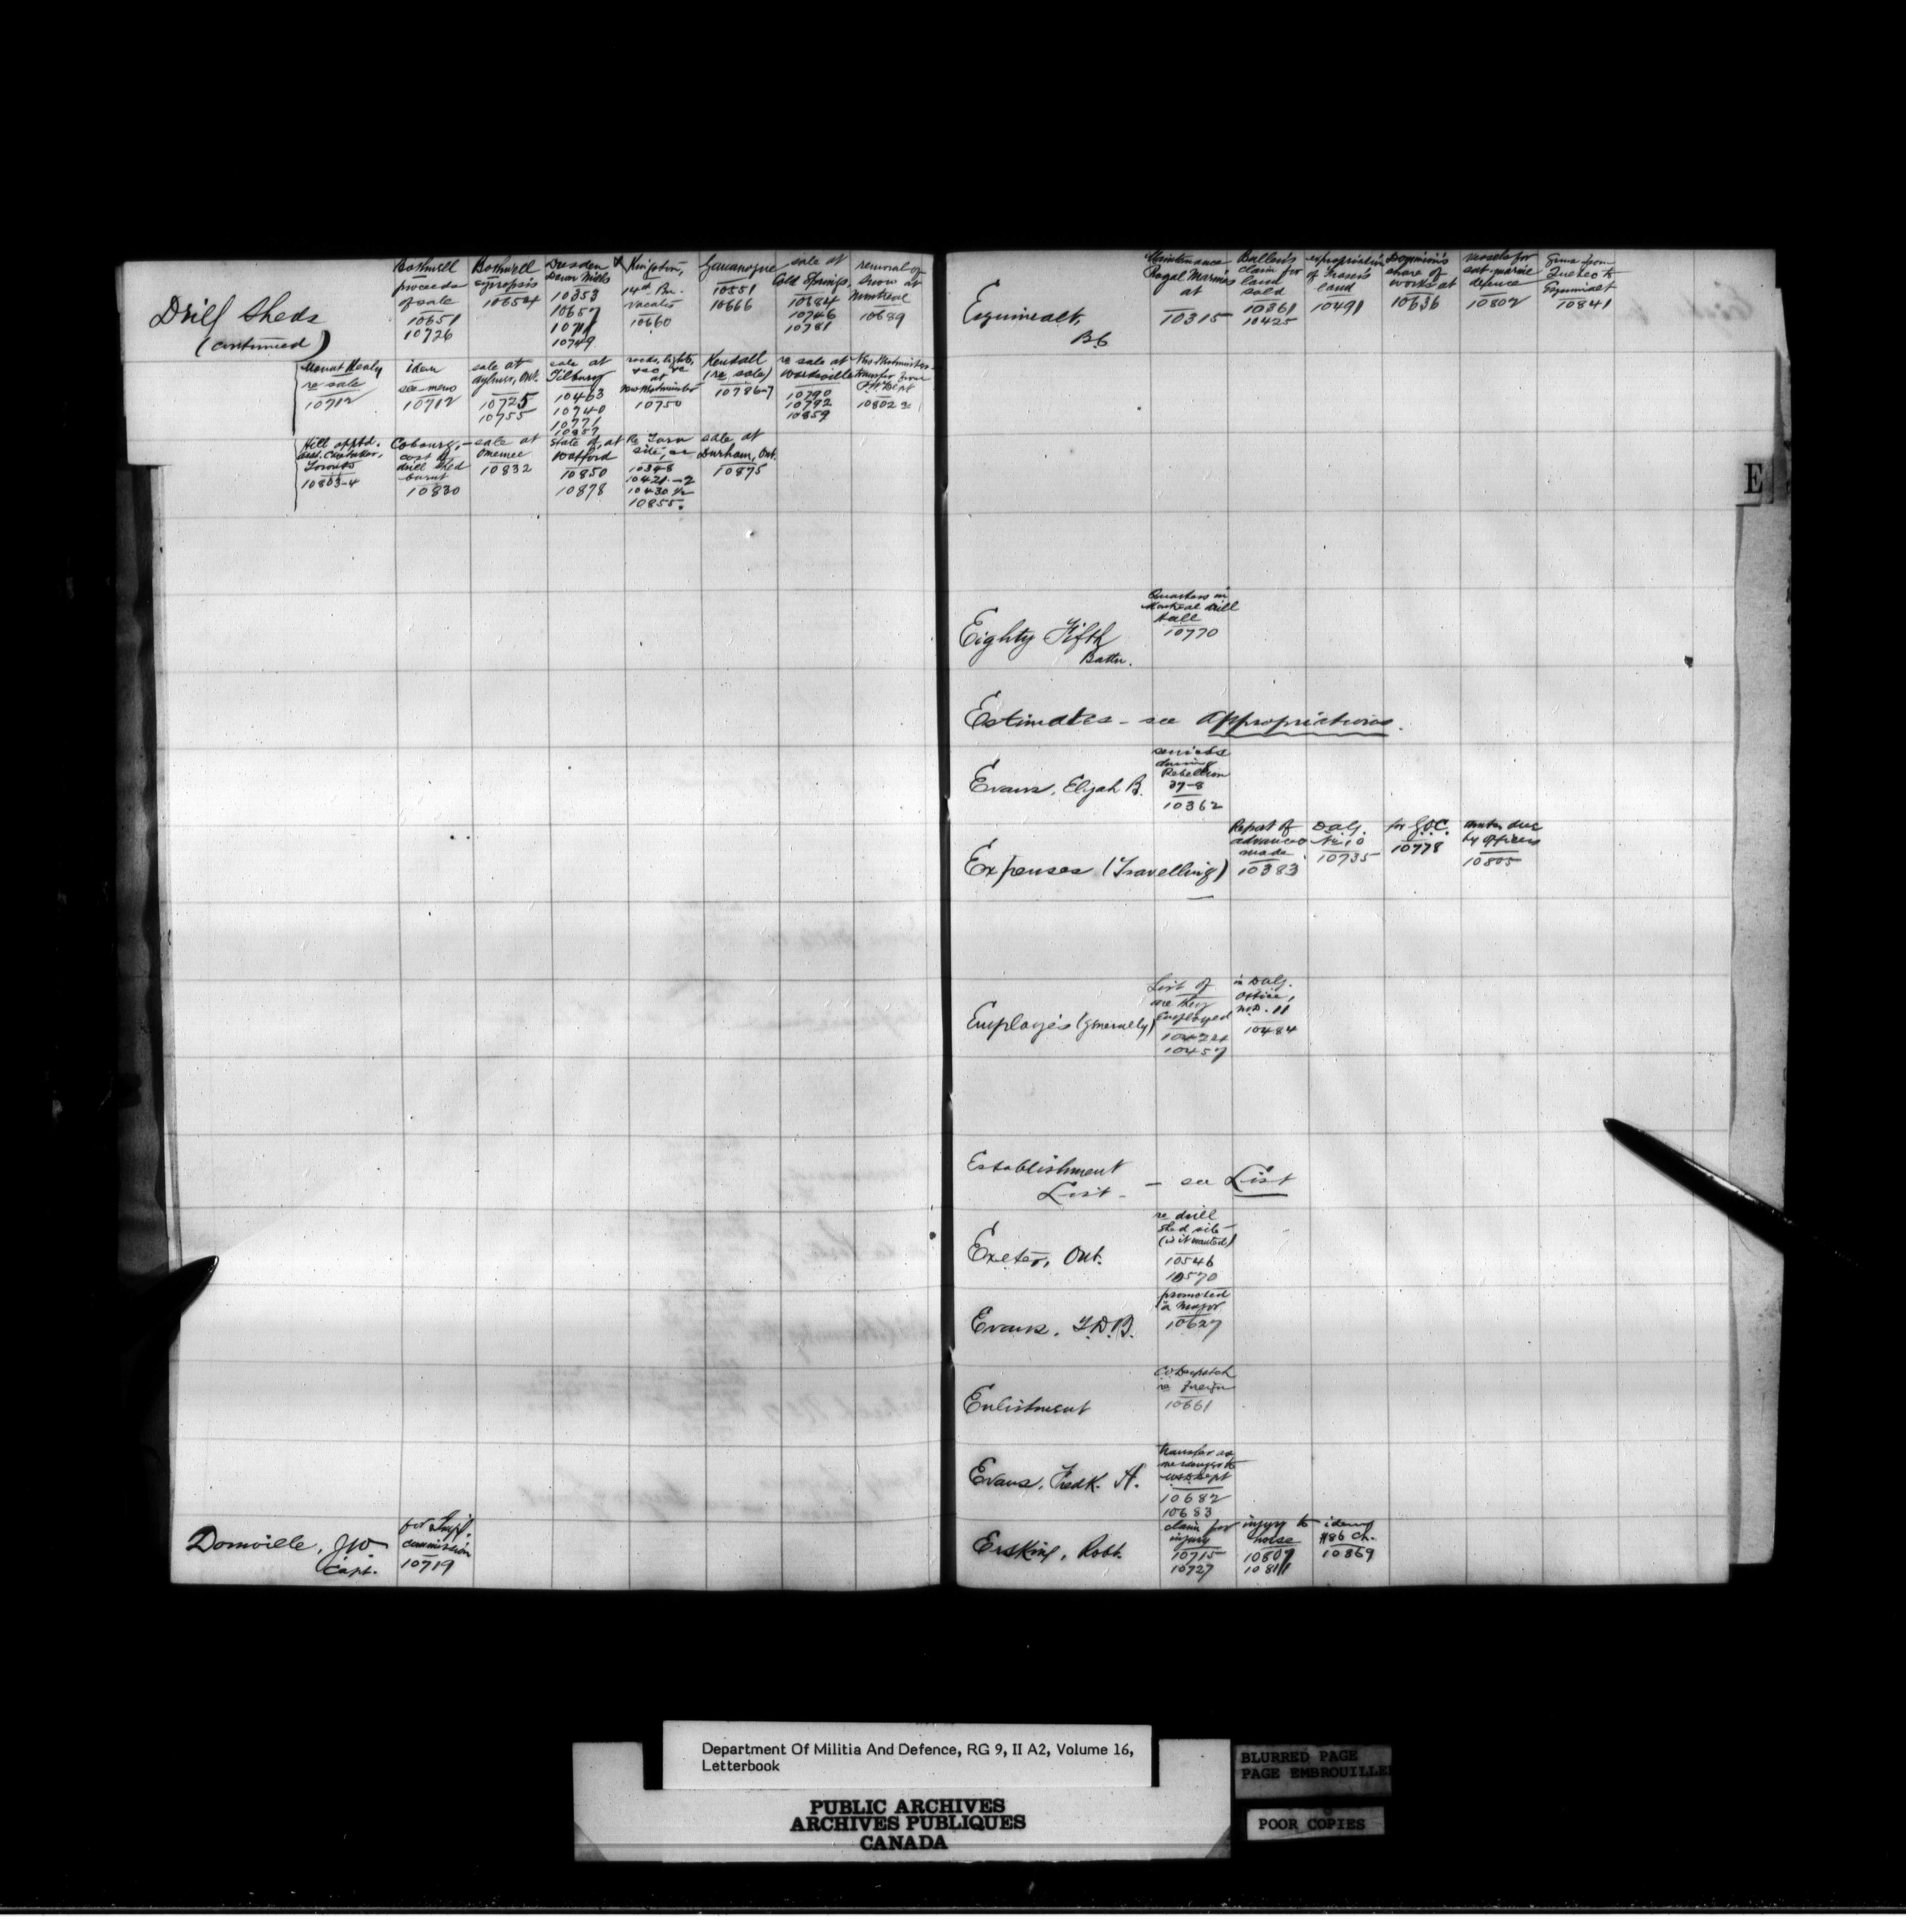 Drill Sheds
(continued)
Bothwell
proceeds
of sale
10651
10726
Bothwell
synopsis
10654
Dresden &
Dawn Mills
10353
10657
10711
10749
Kingston,
14th Bn.
vacates
10660
Gananoque
10551
10666
sale at
Cold Springs
10684
10746
10781
removal of
snow at
Montreal
10689
Mount Healy
re sale
10712
idem
see memo
10712
sale at
Aylmer, Ont.
10725
10755
sale at
Tilbury
10403
10740
10771
10857
at
New Westminster
10750
Kendall
(re sale)
10786-7
re sale at
Wardsville
10790
10792
10859
New Westminster
transfer from
10802
Hill apptd.
asst. Caretaker,
Toronto
10803-4
Cobourg,-
cost of
drill shed
burnt
10830
sale at
Omemee
10832
State of, at
Watford
10850
10878
site,
10348
10421-2
10430
10855.
sale at
Durham, Ont.
10875
Domville, JW
Capt.
for
commission
10719
Esquimalt,
B.C
Maintenance
Royal Marines
at
10315
Bullen's
claim for
land
sold
10361
10425
expropriation
of
land
10491
Dominion's
share of
works at
10636
vessels for
sub-marine
defence
10802
from
Quebec to
Esquimalt
10841
E
Eighty Fifth
Battn.
Quarters in
Montreal drill
Hall
10770
Estimates - see Appropriations.
Evans, Elijah B.
services
during
Rebellion
37-8
10362
Expenses (Travelling)
Report of
advances
made
10383
D.A.G.
No 10
10735
for G.O.C.
10778
by Officers
10805
Employés (generally)
List of
employed
10457
in D.A.G.
Office,
M.D. 11
10484
Establishment
List - - see List
Exeter, Ont.
re drill
shed site -
(is it wanted)
10546
10570
Evans, T.D.B.
promoted
a Major
10627
Enlistment
Co Despatch
re foreign
10661
Evans, Fredk. H.
transfer as
messenger to
10682
10683
Erskine, Robt.
claim for
injury
10715
10727
injury to
horse
10807
10811
idem
$86 Ch.
10869
Department Of Militia And Defence, RG 9, II A2, Volume 16,
Letterbook
PUBLIC ARCHIVES
ARCHIVES PUBLIQUES
CANADA
BLURRED PAGE
PAGE EMBROUILLEE
POOR COPIES